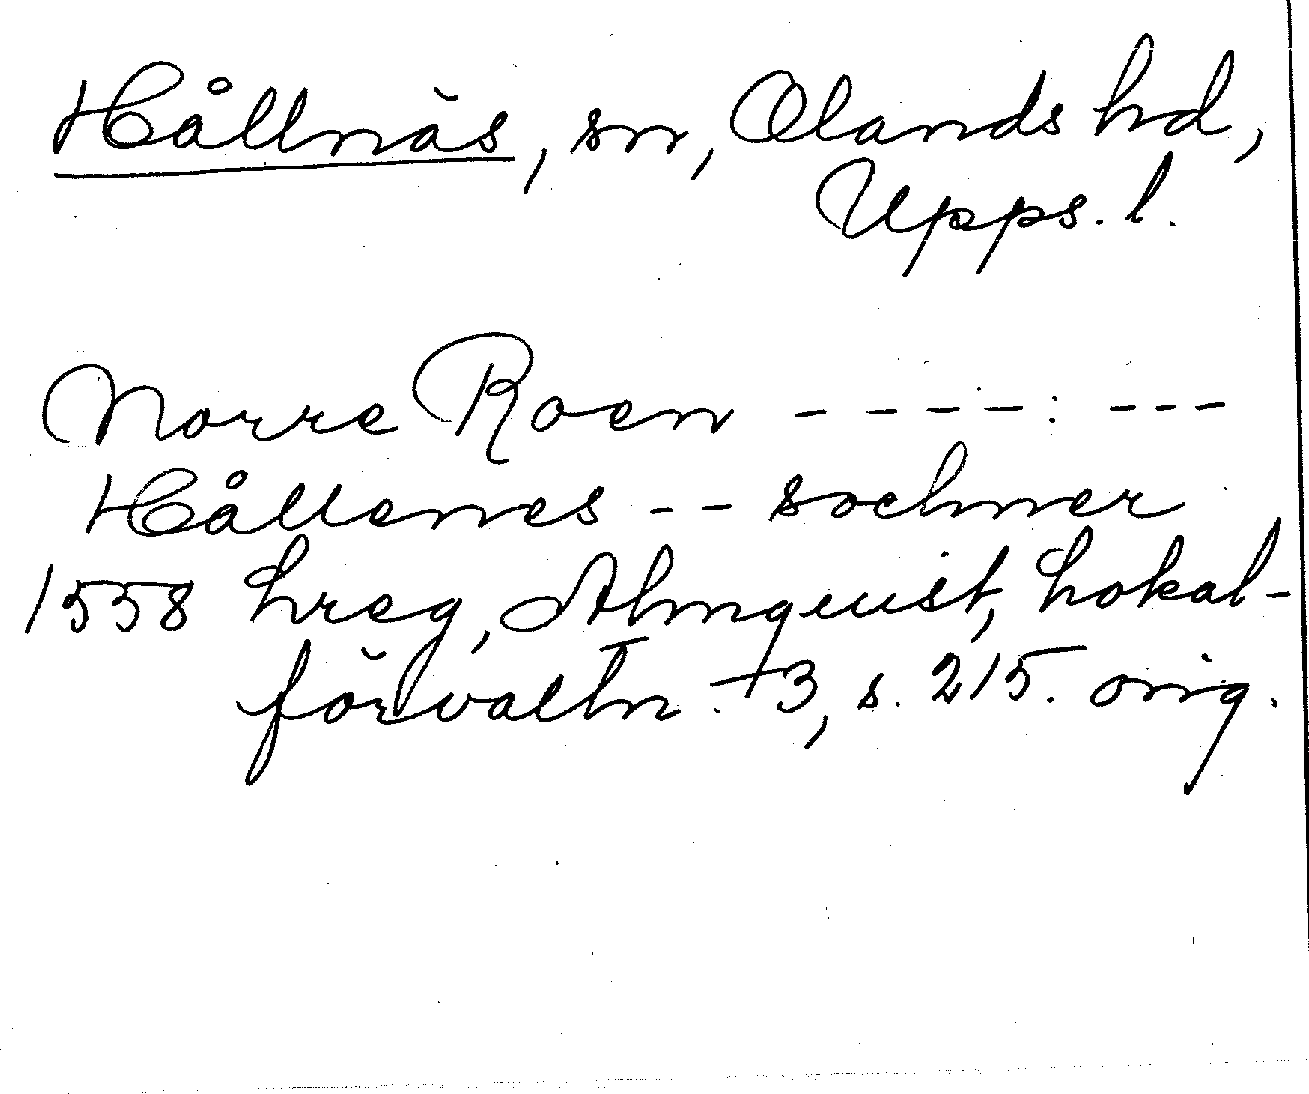 Hållnäs, sn, Olands hd,
Upps. l.
Norre Roen - - - - : - - -
Hållenes - - sochner
1558 hreg, Almquist, Lokal-
förvaltn. +3, s. 215. orig.